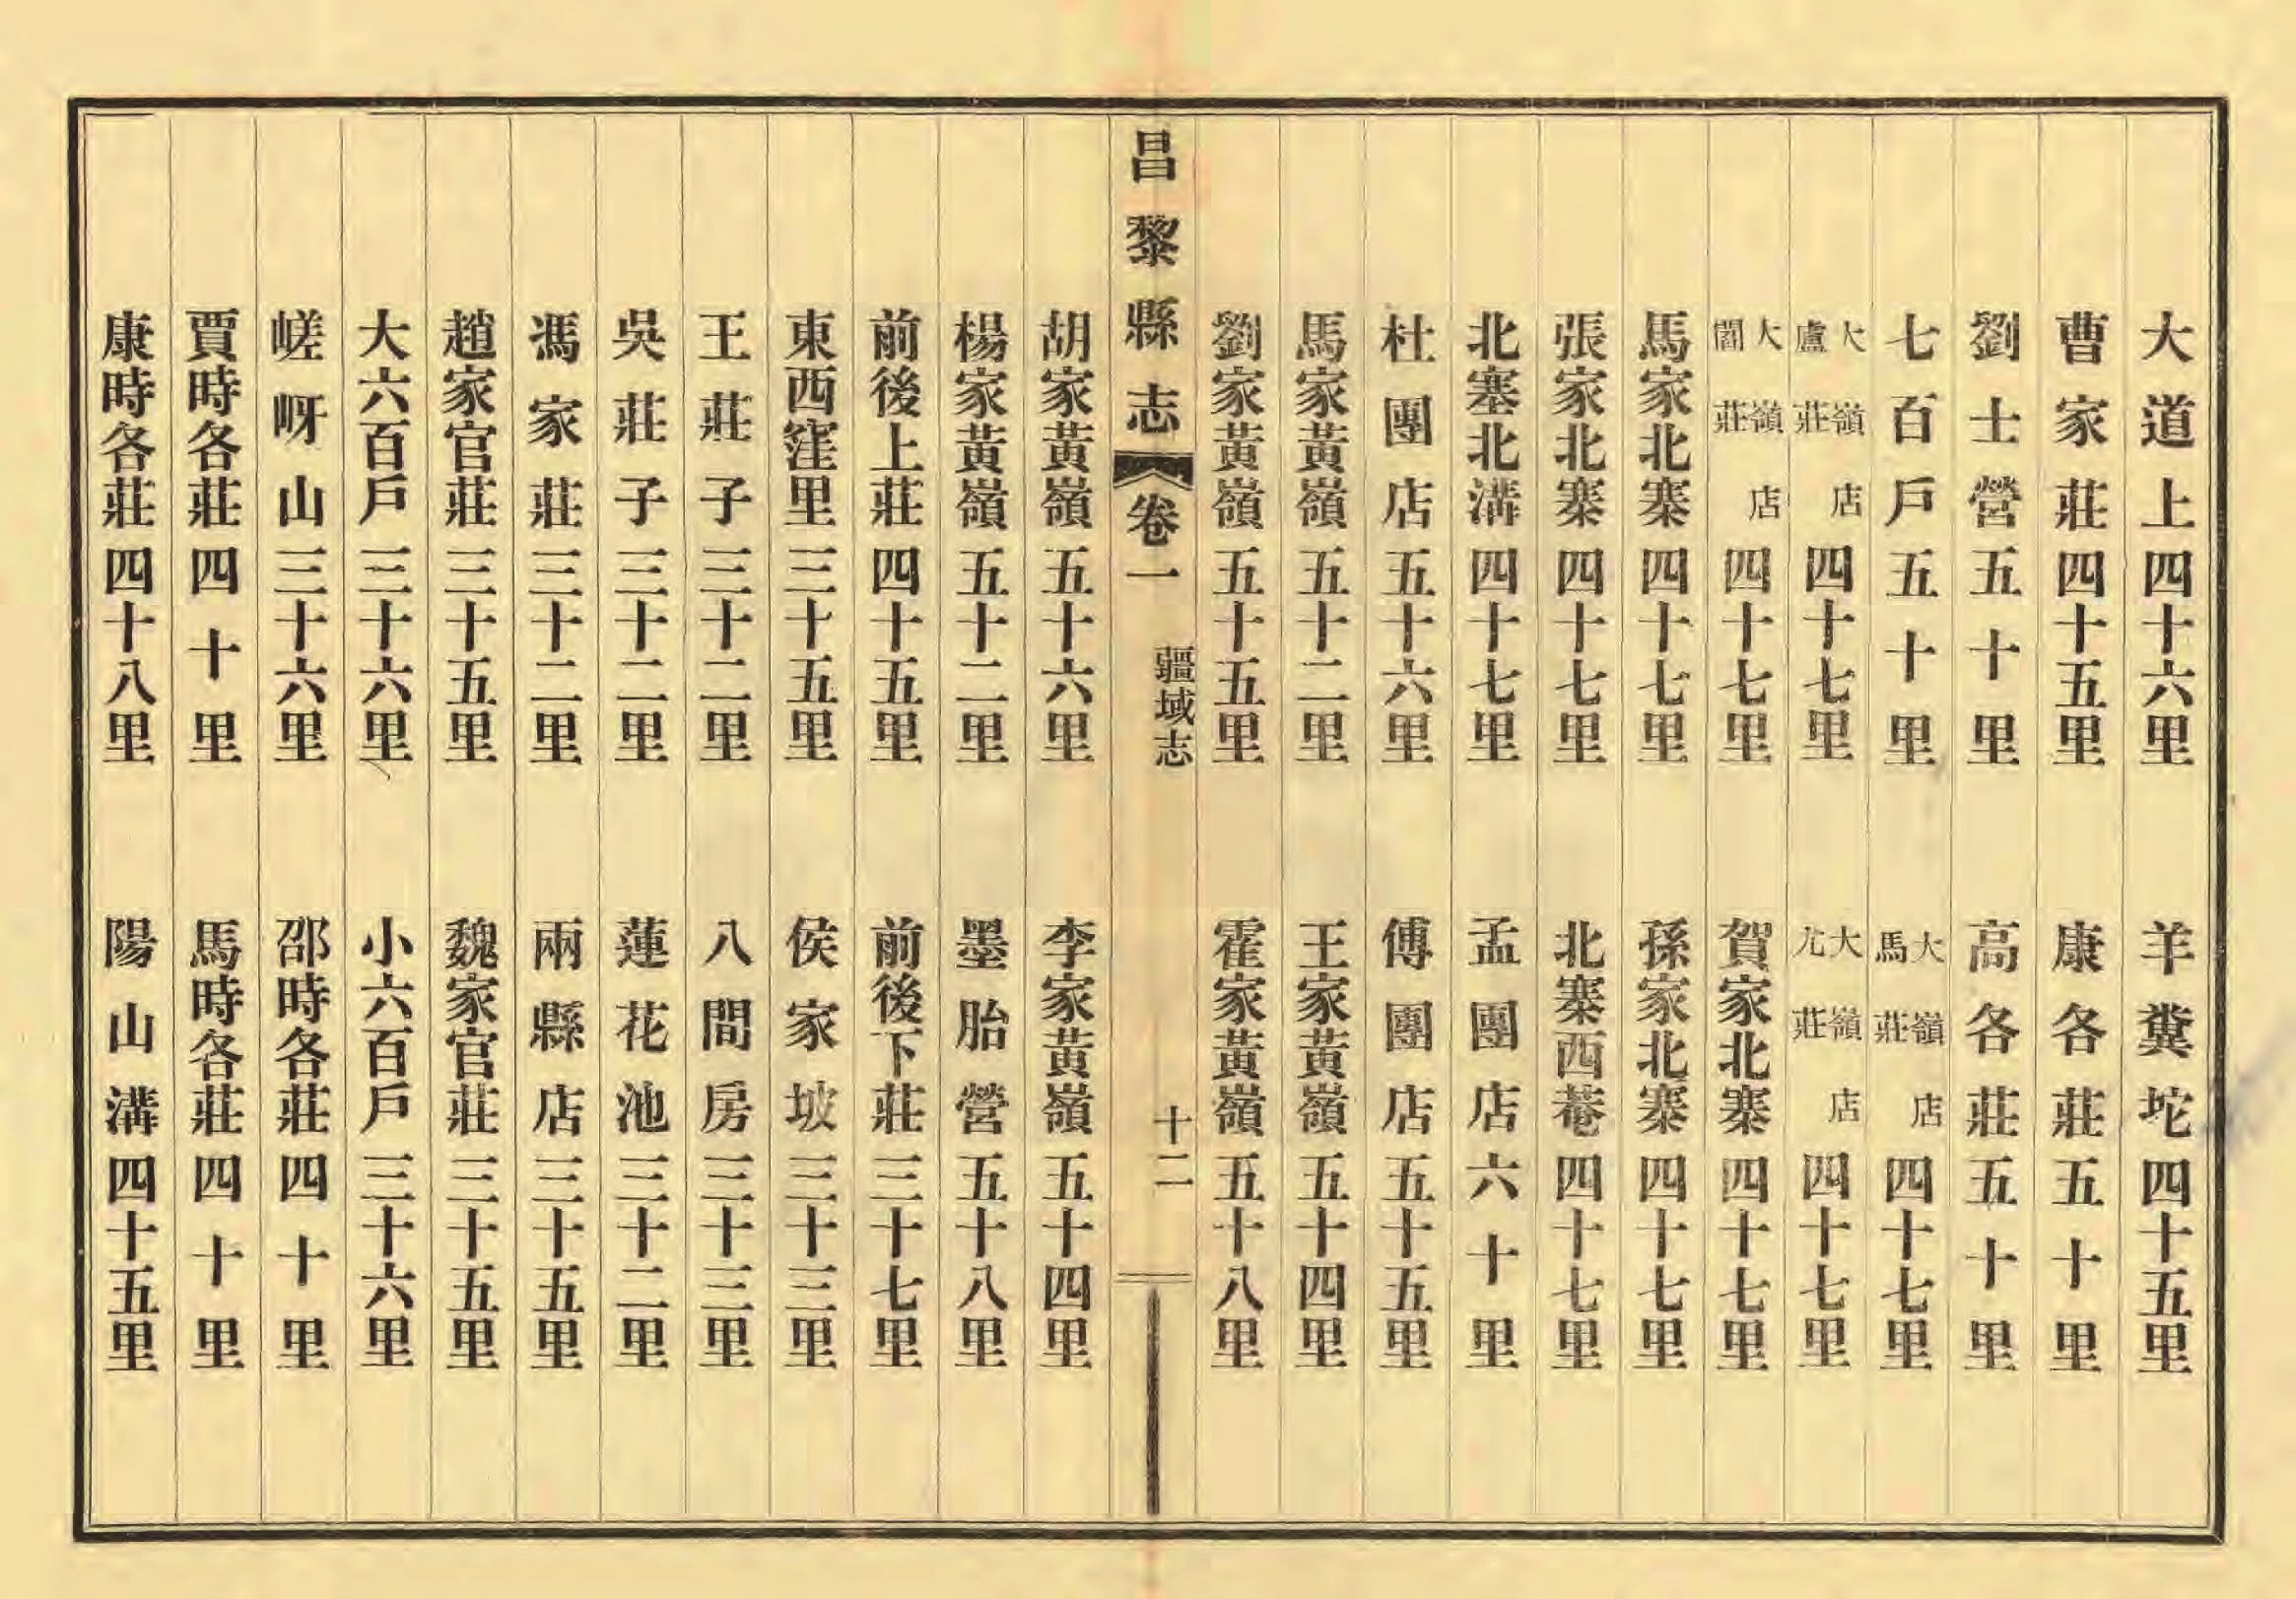 大道上四十六里　羊糞坨四十五里
曹家莊四十五里　康各莊五十里
劉士營五十里　高各莊五十里
七百戶五十里　大嶺店馬莊四十七里
大嶺店盧莊四十七里　大嶺店尤莊四十七里
大嶺店閻莊四十七里　賀家北寨四十七里
馬家北寨四十七里　孫家北寨四十七里
張家北寨四十七里　北寨西菴四十七里
北塞北溝四十七里　孟團店六十里
杜團店五十六里　傅團店五十五里
馬家黃嶺五十二里　王家黃嶺五十四里
劉家黃嶺五十五里　霍家黃嶺五十八里
昌黎縣志　卷一　疆域志　十二
胡家黃嶺五十六里　李家黃嶺五十四里
楊家黃嶺五十二里　墨胎營五十八里
前後上莊四十五里　前後下莊三十七里
東西窪里三十五里　侯家坡三十三里
王莊子三十二里　八間房三十三里
吳莊子三十二里　蓮花池三十二里
馮家莊三十二里　兩縣店三十五里
趙家官莊三十五里　魏家官莊三十五里
大六百戶三十六里　小六百戶三十六里
嵯岈山三十六里　邵時各莊四十里
賈時各莊四十里　馬時各莊四十里
康時各莊四十八里　陽山溝四十五里